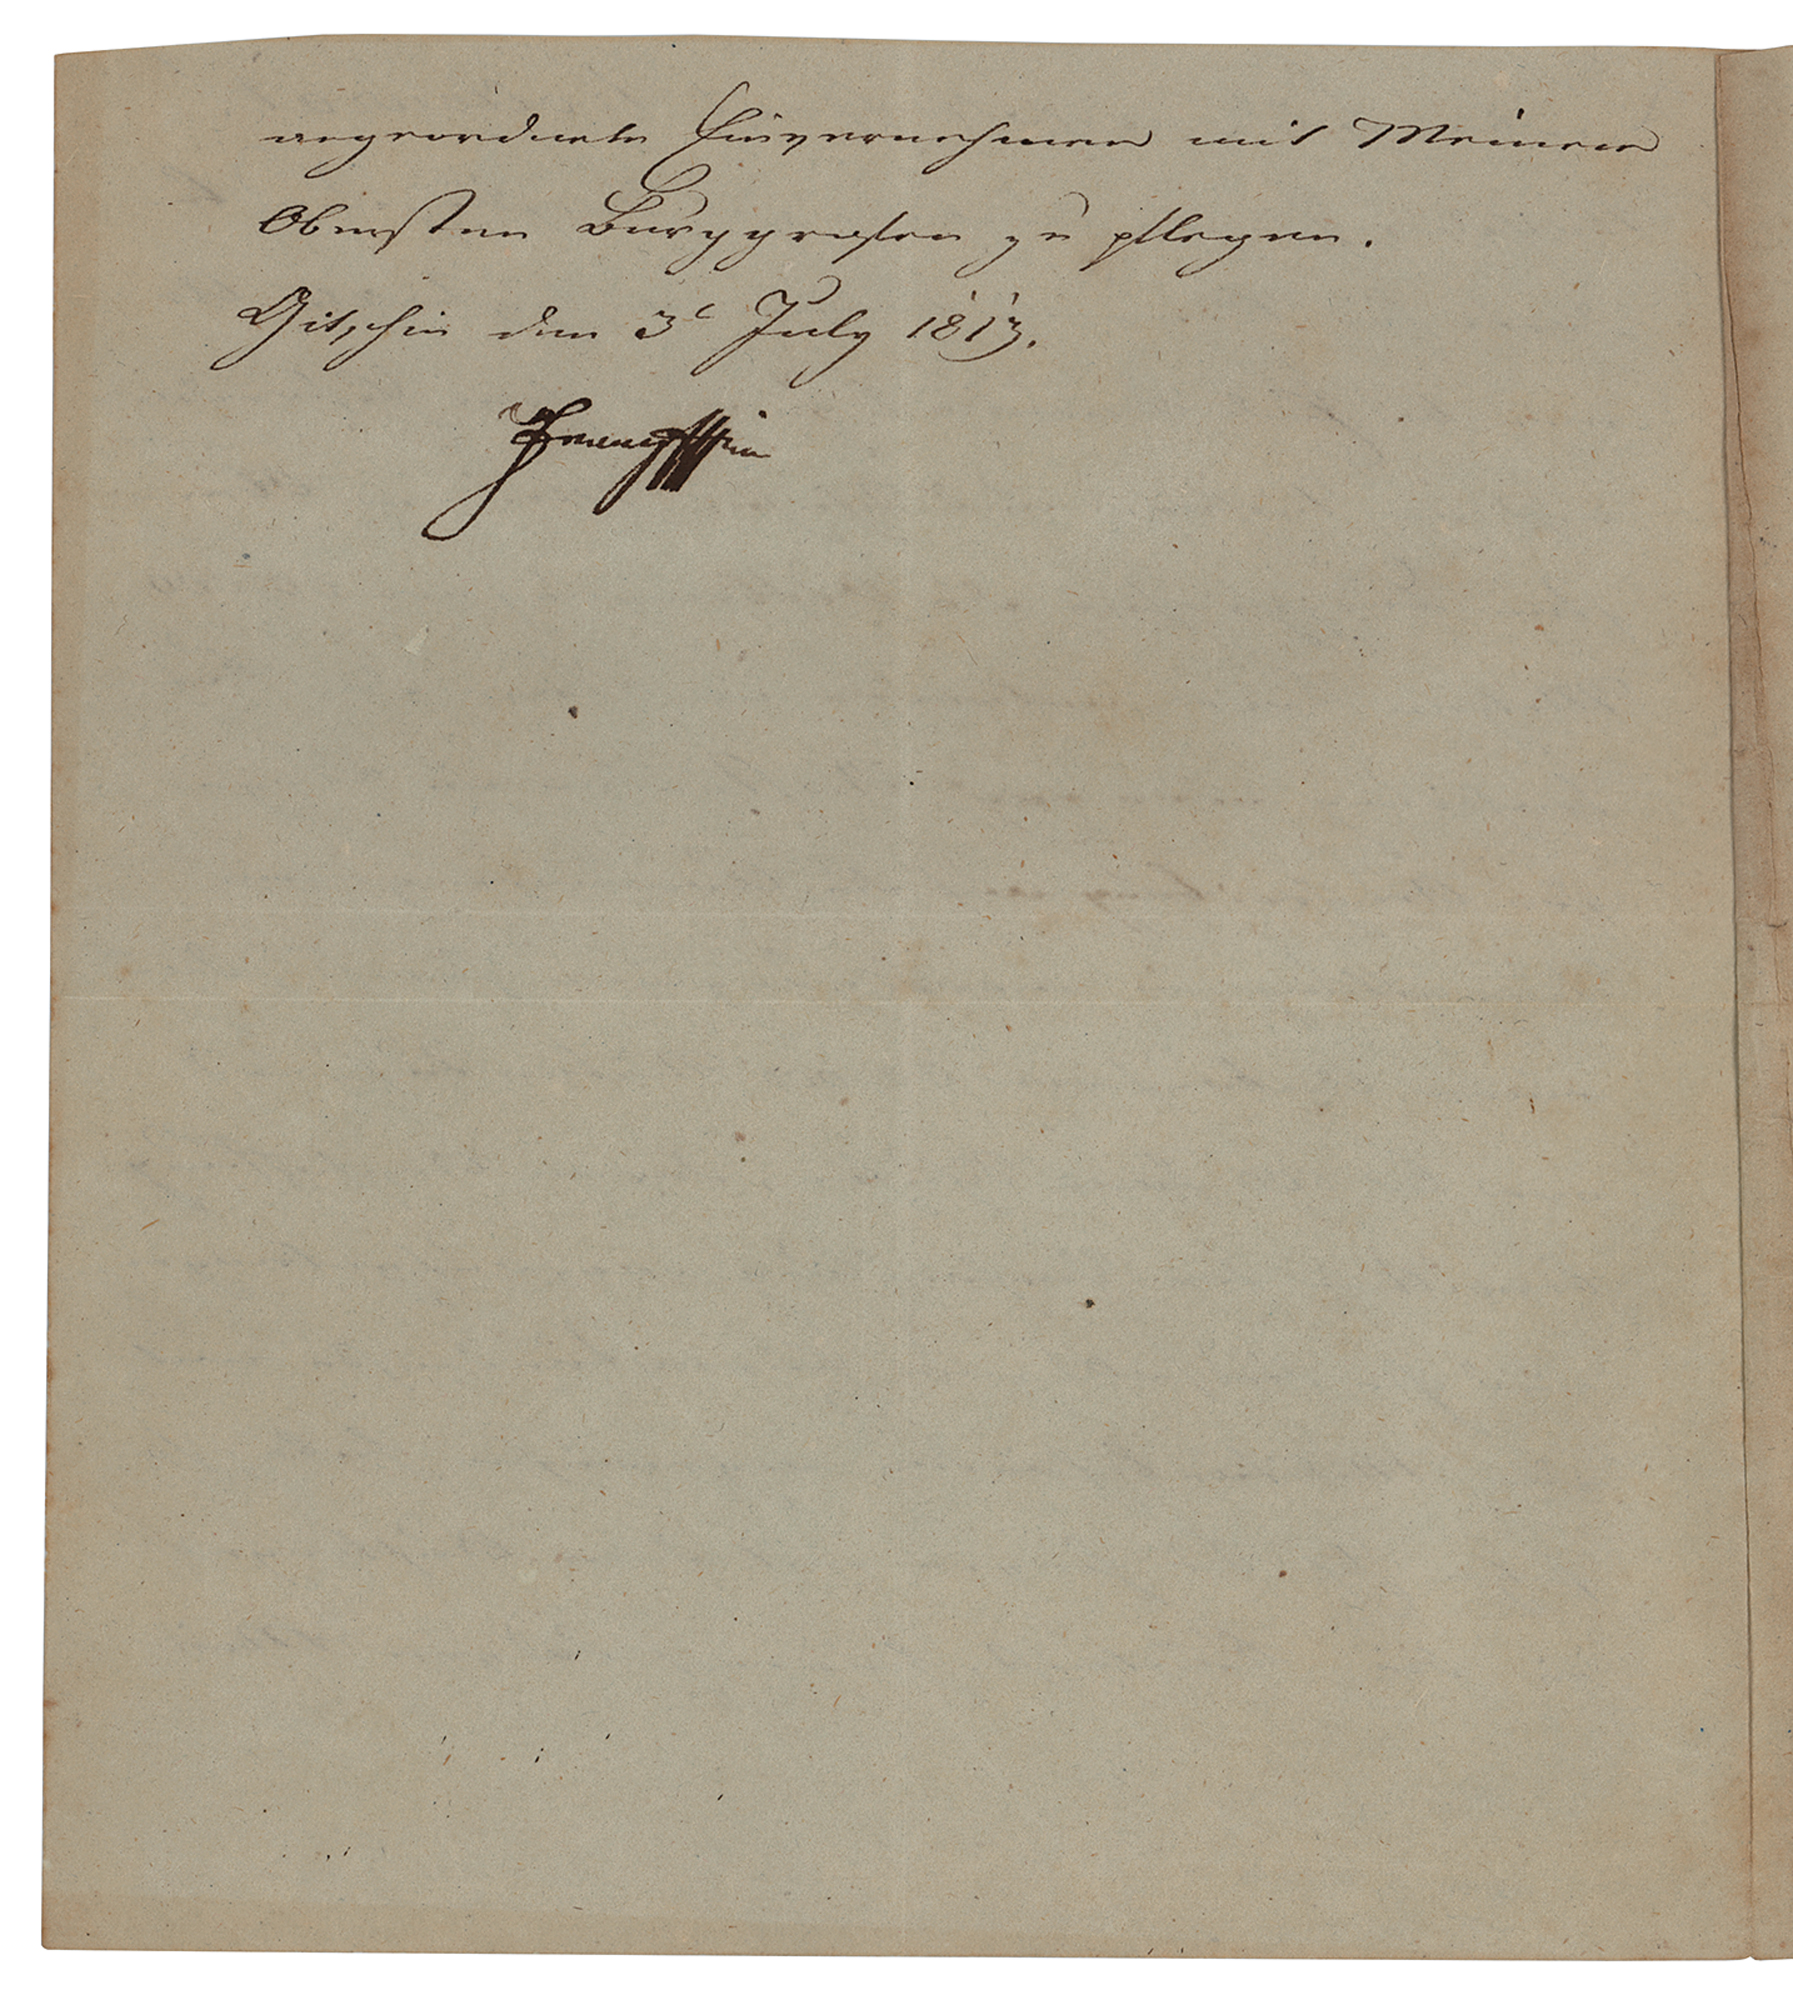 angeordnete Einvernehmen mit Meinem
Obersten Burggrafen zu pflegen.
Gitschin den 3t July 1813.
Franz